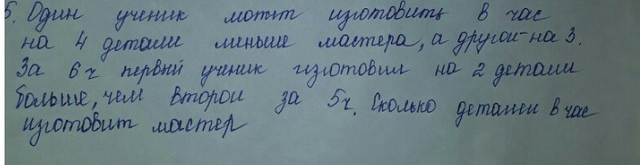 5. Один ученикможт изготовить в час
на 4 детали меньше мастера, а другой-на 3.
За 6 ч первый ученик изготовил на 2 детали
больше, чем второй за 5ч. Сколько деталей в час
изготовит мастер